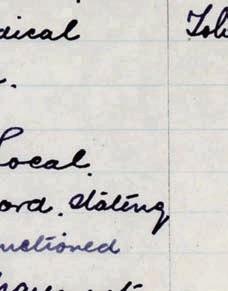 dical
Local
ord. stating
nctioned